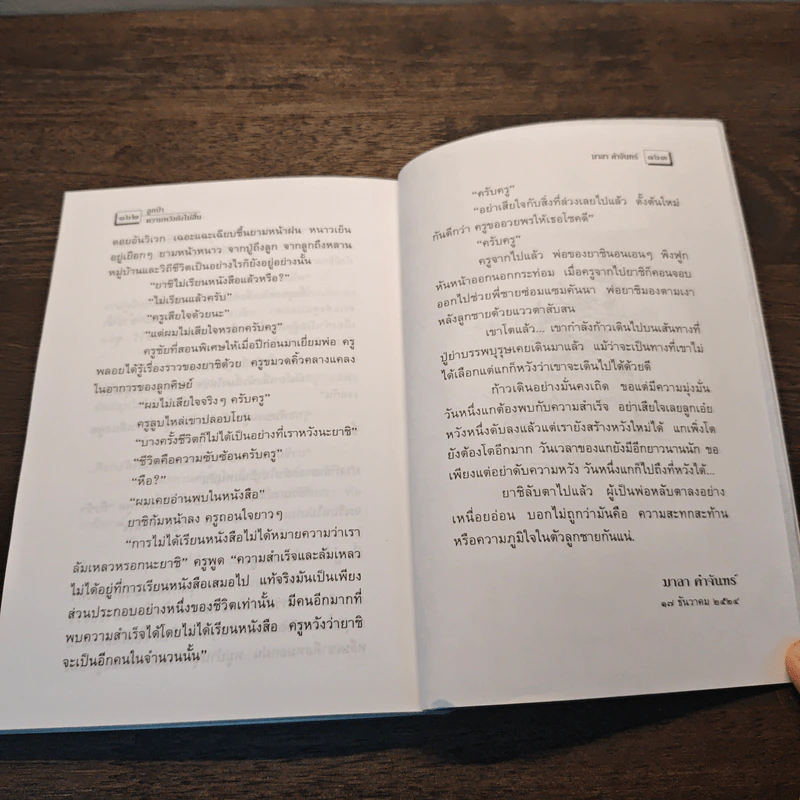 ๑๖๒
ลูกป่า
ความหวังยังไม่สิ้น
ดอยอันวิเวก เฉอะแฉะเฉียบชื้นยามหน้าฝน หนาวเย็น
อยู่เยือกๆ ยามหน้าหนาว จากปู่ถึงลูก จากลูกถึงหลาน
หมู่บ้านและวิถีชีวิตเป็นอย่างไรก็ยังอยู่อย่างนั้น
“ยาชิไม่เรียนหนังสือแล้วหรือ?”
“ไม่เรียนแล้วครับ”
“ครูเสียใจด้วยนะ”
“แต่ผมไม่เสียใจหรอกครับครู”
ครูชัยที่สอนพิเศษให้เมื่อปีก่อนมาเยี่ยมพ่อ ครู
พลอยได้รู้เรื่องราวของยาชิด้วย ครูขมวดคิ้วคลางแคลง
ในอาการของลูกศิษย์
“ผมไม่เสียใจจริงๆ ครับครู”
ครูลูบไหล่เขาปลอบโยน
“บางครั้งชีวิตก็ไม่ได้เป็นอย่างที่เราหวังนะยาชิ”
“ชีวิตคือความซับซ้อนครับครู”
“หือ?”
“ผมเคยอ่านพบในหนังสือ”
ยาชิก้มหน้าลง ครูถอนใจยาวๆ
“การไม่ได้เรียนหนังสือไม่ได้หมายความว่าเรา
ล้มเหลวหรอกนะยาชิ” ครูพูด “ความสำเร็จและล้มเหลว
ไม่ได้อยู่ที่การเรียนหนังสือเสมอไป แท้จริงมันเป็นเพียง
ส่วนประกอบอย่างหนึ่งของชีวิตเท่านั้น มีคนอีกมากที่
พบความสำเร็จได้โดยไม่ได้เรียนหนังสือ ครูหวังว่ายาชิ
จะเป็นอีกคนในจำนวนนั้น”
มาลา คำจันทร์ ๑๖๓
“ครับครู”
“อย่าเสียใจกับสิ่งที่ล่วงเลยไปแล้ว ตั้งต้นใหม่
กันดีกว่า ครูขออวยพรให้เธอโชคดี”
“ครับครู”
ครูจากไปแล้ว พ่อของยาชินอนเอนๆ พิงฟูก
หันหน้าออกนอกกระท่อม เมื่อครูจากไปยาชิก็คอนจอบ
ออกไปช่วยพี่ชายซ่อมแซมคันนา พ่อยาชิมองตามเงา
หลังลูกชายด้วยแววตาสับสน
เขาโตแล้ว... เขากำลังก้าวเดินไปบนเส้นทางที่
ปู่ย่าบรรพบุรุษเคยเดินมาแล้ว แม้ว่าจะเป็นทางที่เขาไม่
ได้เลือกแต่แกก็หวังว่าเขาจะเดินไปได้ด้วยดี
ก้าวเดินอย่างมั่นคงเถิด ขอแต่มีความมุ่งมั่น
วันหนึ่งแกต้องพบกับความสำเร็จ อย่าเสียใจเลยลูกเอ๋ย
หวังหนึ่งดับลงแล้วแต่เรายังสร้างหวังใหม่ได้ แกเพิ่งโต
ยังต้องโตอีกมาก วันเวลาของแกยังมีอีกยาวนานนัก ขอ
เพียงแต่อย่าดับความหวัง วันหนึ่งแกก็ไปถึงที่หวังได้...
ยาชิลับตาไปแล้ว ผู้เป็นพ่อหลับตาลงอย่าง
เหนื่อยอ่อน บอกไม่ถูกว่ามันคือ ความสะทกสะท้าน
หรือความภูมิใจในตัวลูกชายกันแน่.
มาลา คำจันทร์
๑๗ ธันวาคม ๒๕๒๔